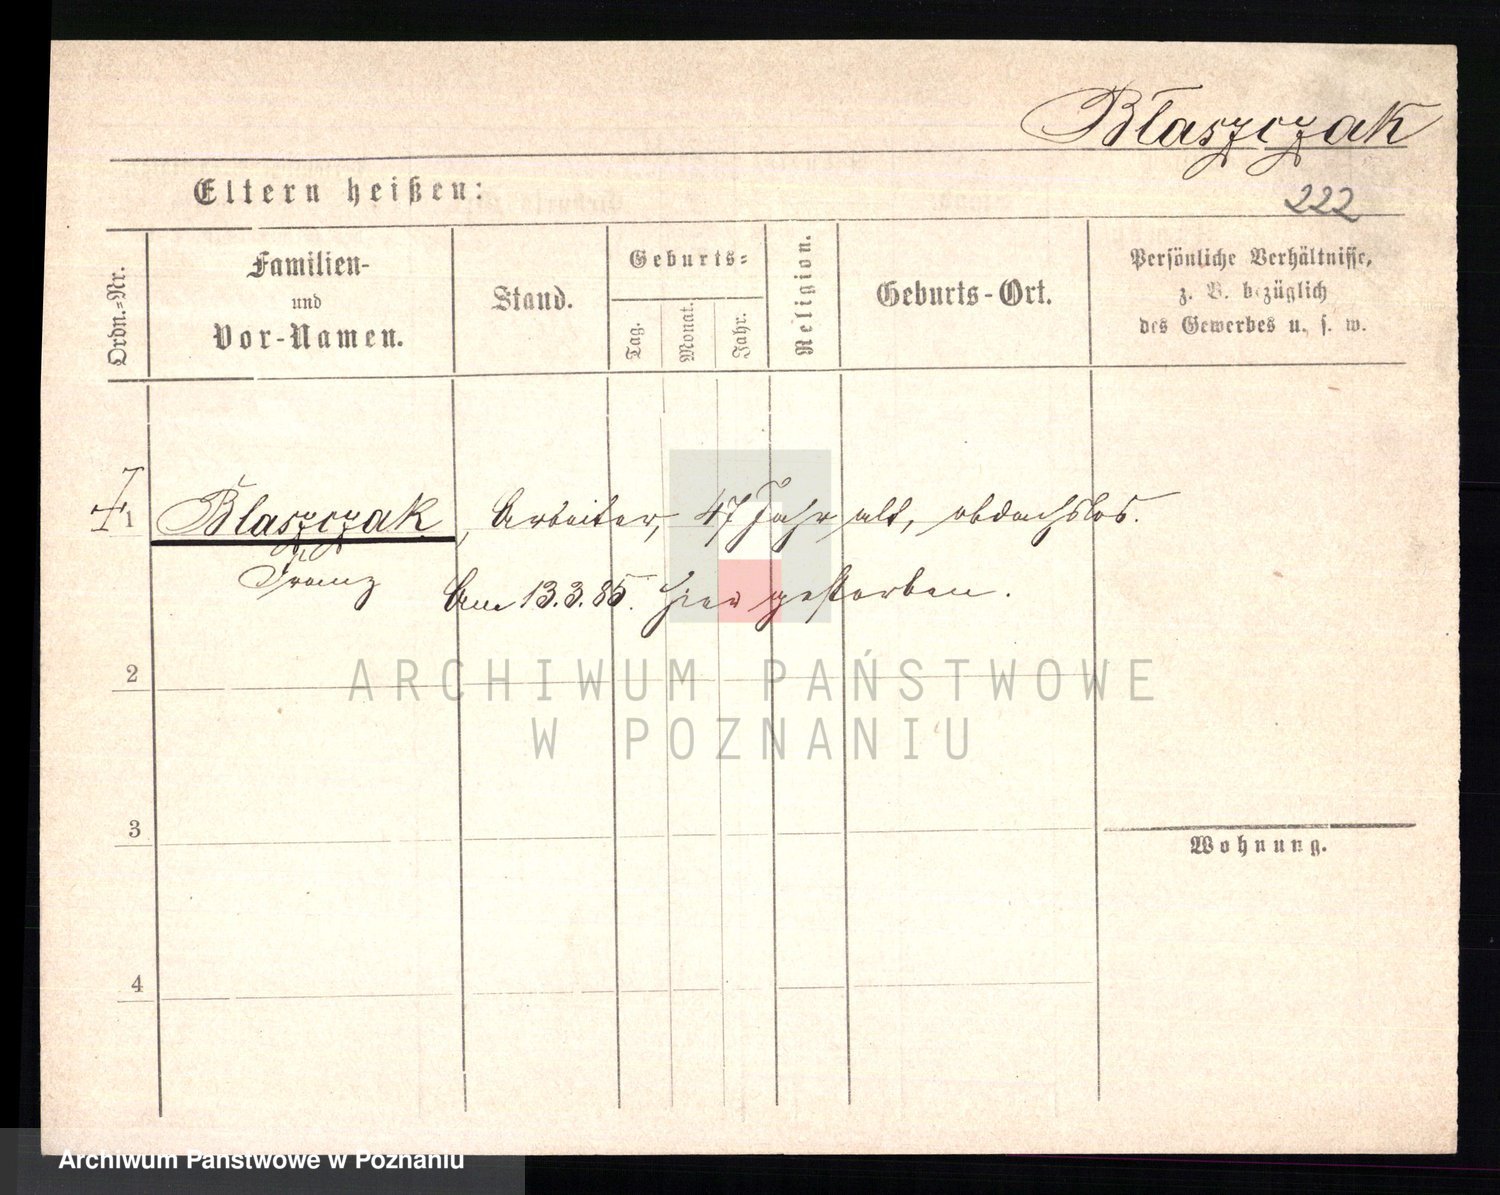 Błaszczak
Eltern heißen:
222
Ordn.-Nr.
Familien-
und
Vor-Namen.
Stand.
Geburts-
Tag.
Monat.
Jahr.
Religion.
Geburts-Ort.
Persönliche Verhältnisse,
z. B. bezüglich
des Gewerbes u. s. w.
1 Blaszczak, Arbeiter, 47 Jahr alt, obdachslos.
Franz
Am 13.3.85. hier gestorben.
2
ARCHIWUM PAŃSTWOWE
W POZNANIU
3
Wohnung.
4
Archiwum Państwowe w Poznaniu